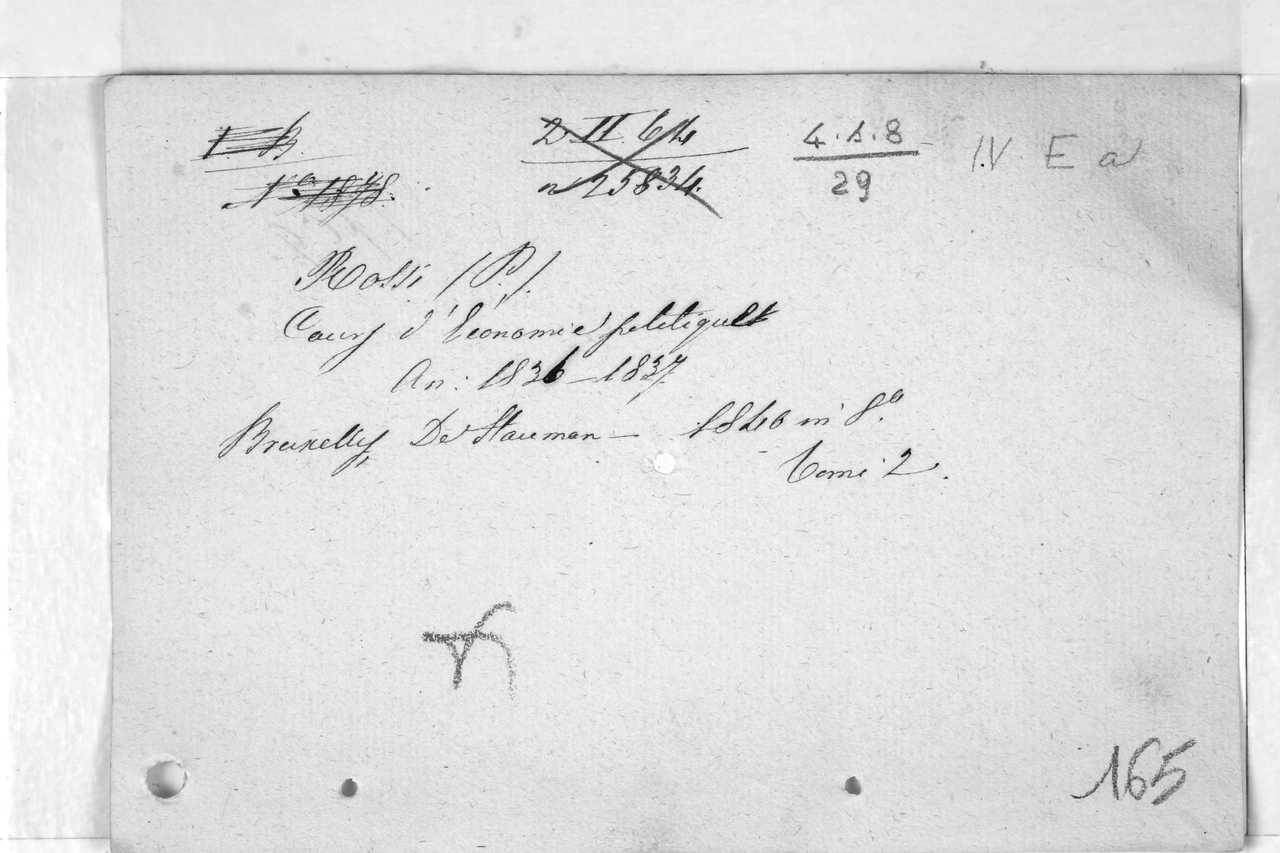 2. II. 64
n 25834.
4.4.8
29
IV E a
Rossi (P.)
Cours d'économie politique
An: 1836-1837
Bruxelles, De Hauman - 1840 in 8º
tome 2.
165